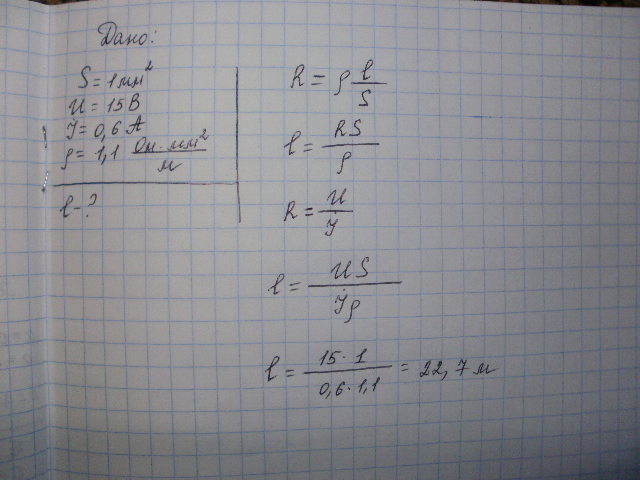 Дано:
S = 1 мм²
U = 15 В
I = 0,6 А
ρ = 1,1 Ом · мм² / м
l - ?
R = ρ l / S
l = RS / ρ
R = U / I
l = US / Iρ
l = 15 · 1 / 0,6 · 1,1 = 22,7 м